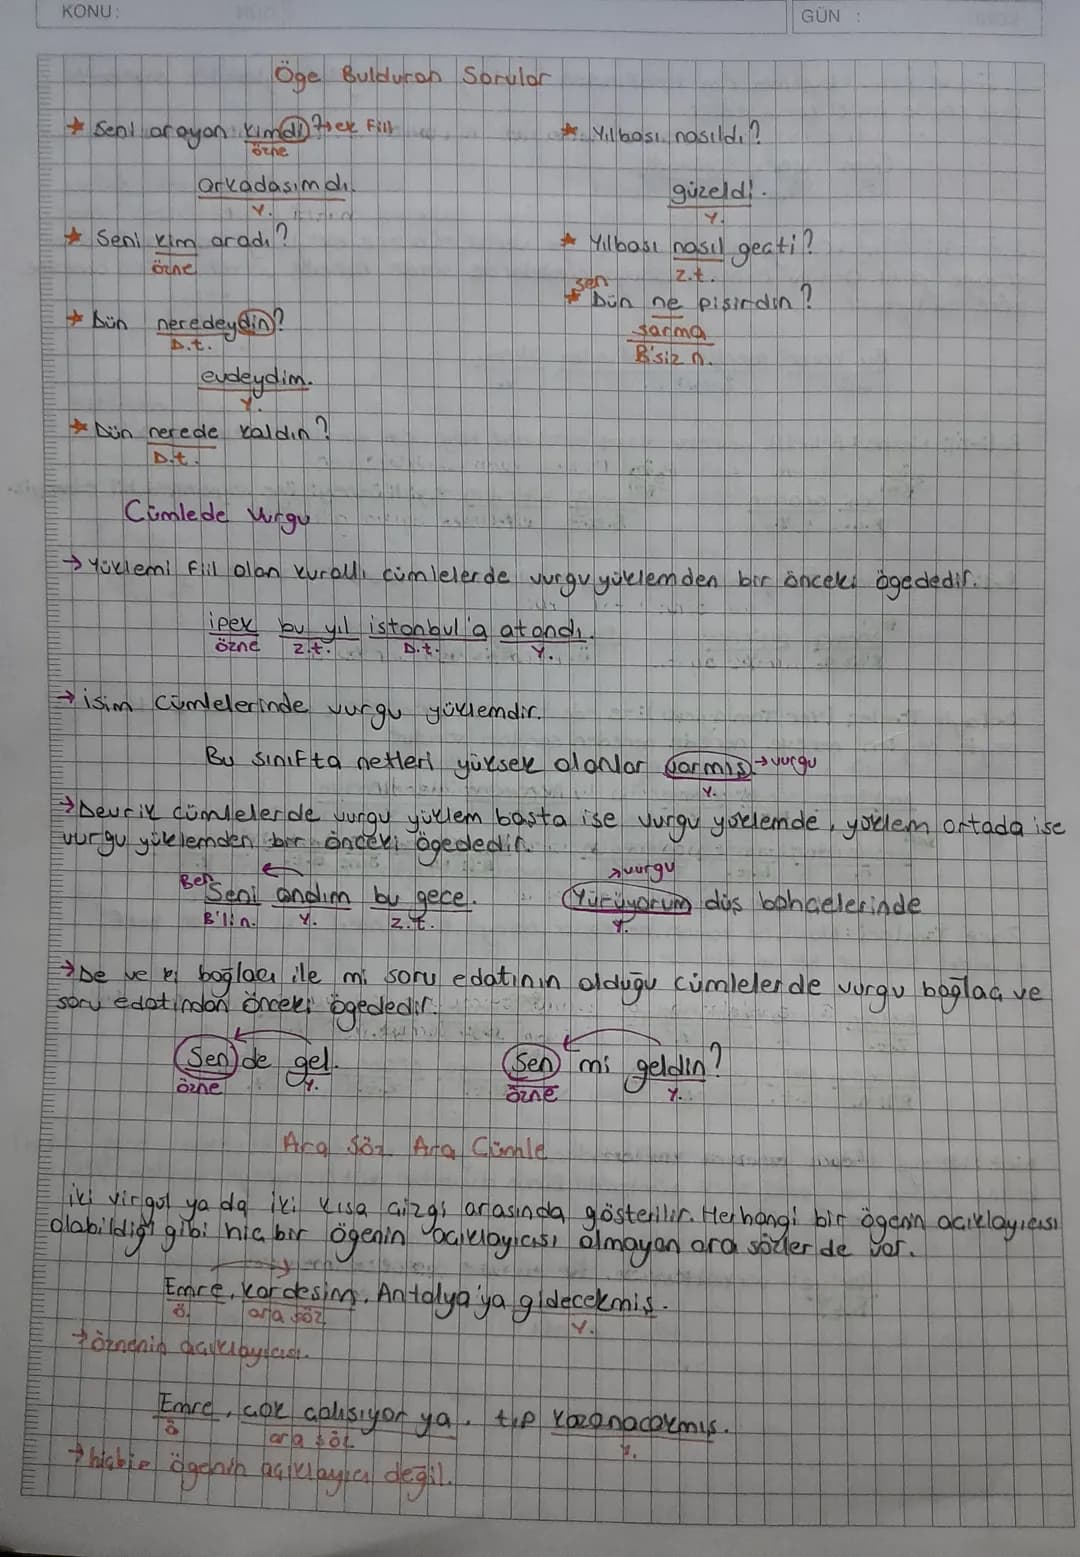 KONU:
GÜN :
Öge Bulduran Sorular
★ Seni arayan kimdi? → ek fiil
özne
arkadaşımdı.
Y.
★ Seni kim aradı?
özne
★ Dün neredeydin?
D.t.
evdeydim.
Y.
★ Dün nerede kaldın?
D.t.
★ Yılbaşı nasıldı?
güzeldi.
Y.
★ Yılbaşı nasıl geçti?
z.t.
sen
★ Dün ne pişirdin?
sarma
B'siz n.
Cümlede Vurgu
→ Yüklemi fiil olan kurallı cümlelerde vurgu yüklemden bir önceki ögededir.
ipek bu yıl istanbul'a atandı.
özne z.t. D.t. Y.
→ isim cümlelerinde vurgu yüklemdir.
Bu sınıfta netleri yüksek olanlar varmış. → vurgu
Y.
→ Devrik cümlelerde vurgu yüklem başta ise vurgu yüklemde, yüklem ortada ise
vurgu yüklemden bir önceki ögededir.
Ben
Seni andım bu gece.
B'li n. Y. z.t.
→ vurgu
Yürüyorum düş bahçelerinde
Y.
→ De ve ki bağlacı ile mi soru edatının olduğu cümlelerde vurgu bağlaç ve
soru edatından önceki ögededir.
Sen de gel.
özne Y.
Sen mi geldin?
özne Y.
Ara Söz Ara Cümle
iki virgül ya da iki kısa çizgi arasında gösterilir. Herhangi bir ögenin açıklayıcısı
olabildiği gibi hiç bir ögenin açıklayıcısı olmayan ara sözler de var.
Emre, kardeşim, Antalya'ya gidecekmiş.
ö. ara söz Y.
→ öznenin açıklayıcısı.
Emre, çok çalışıyor ya, tıp kazanacakmış.
ö ara söz Y.
→ hiçbir ögenin açıklayıcı değil.